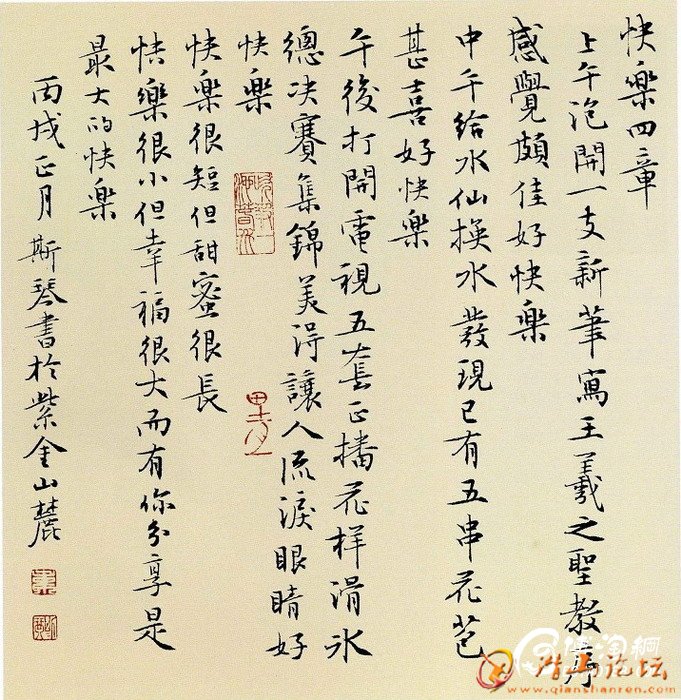 快樂四章
上午泡開一支新筆寫王羲之聖教序
感覺頗佳好快樂
中午給水仙換水發現已有五串花苞
甚喜好快樂
午後打開電視五套正播花樣滑氷
總決賽集錦美得讓人流淚眼睛好
快樂
快樂很短但甜蜜很長
快樂很小但幸福很大而有你分享是
最大的快樂
丙戌正月斯琴書於紫金山麓
潜山论坛
www.qianshanren.com